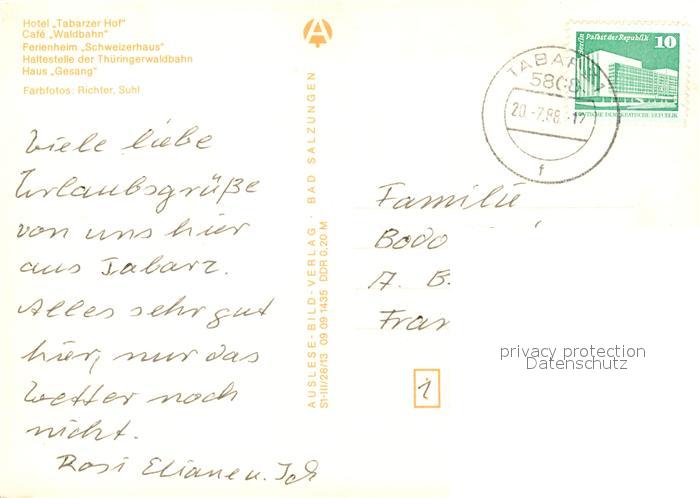 Hotel „Tabarzer Hof“
Café „Waldbahn“
Ferienheim „Schweizerhaus“
Haltestelle der Thüringerwaldbahn
Haus „Gesang“
Farbfotos: Richter, Suhl
Viele liebe
Urlaubsgrüße
von uns hier
aus Tabarz.
Alles sehr gut
hier, nur das
Wetter noch
nicht.
Rosi Eliane u. Ich
AUSLESE-BILD-VERLAG · BAD SALZUNGEN
S1-III/26/13 09 09 1435 DDR 0,20 M
Berlin Palast der Republik
10
DEUTSCHE DEMOKRATISCHE REPUBLIK
TABARZ 1
5808
20.-7.88.-12
f
Familie
Bodo
A. B.
Fran
1
privacy protection
Datenschutz